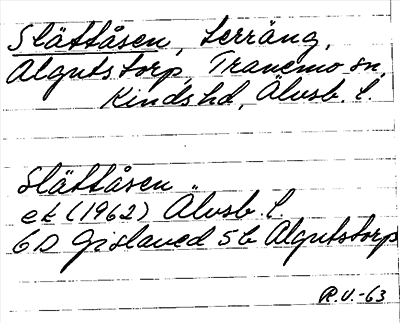 Slättåsen, terräng,
Algutstorp, Tranemo sn,
Kinds hd, Älvsb. l.
Slättåsen
ek (1962) Älvsb. l.
6D Gislaved 5b Algutstorp
R.V.-63